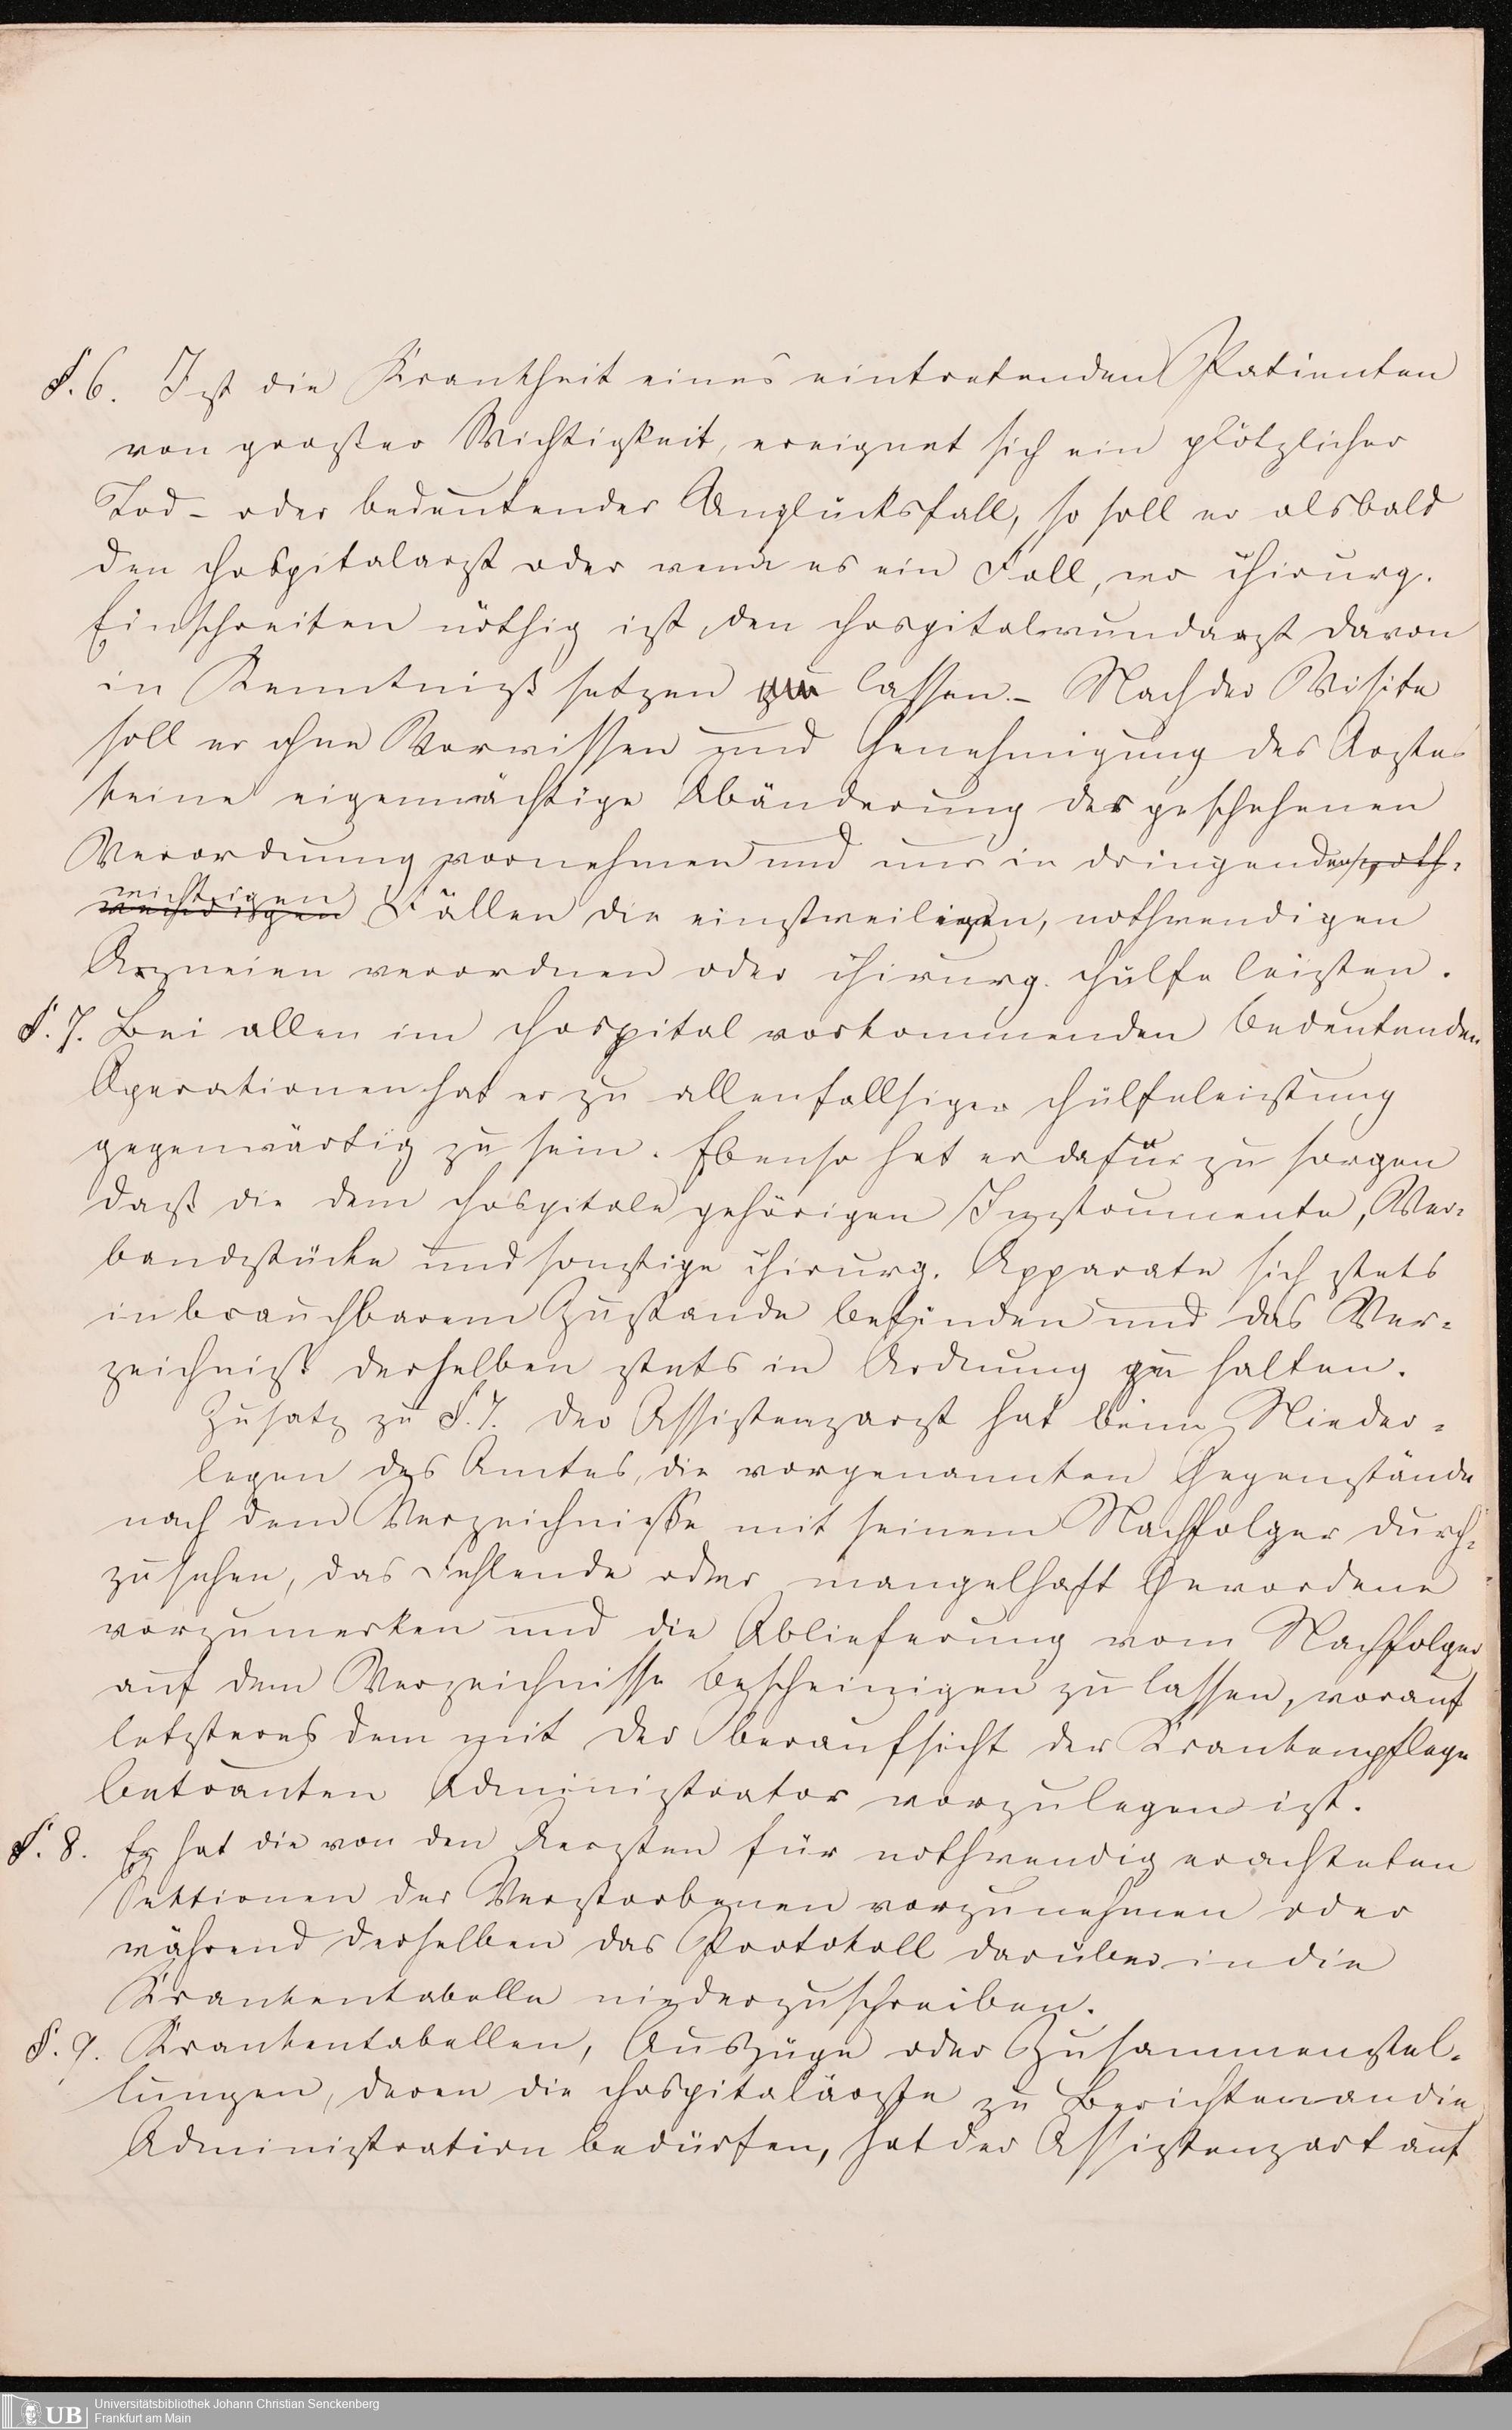 §. 6. Ist die Krankheit eines eintretenden Patienten
von großer Wichtigkeit, ereignet sich ein plötzlicher
Tod- oder bedeutender Unglücksfall, so soll er alsbald
den Hospitalarzt oder wenn es ein Fall, wo chirurg.
Einschreiten nöthig ist, den Hospitalwundarzt davon
in Kenntniß setzen zu lassen. – Nach der Visite
soll er ohne Vorwissen und Genehmigung des Arztes
keine eigenmächtige Abänderung der geschehenen
Verordnung vornehmen und nur in dringenden, noth-
wichtigen
wendigen Fällen die einstweiligen, nothwendigen
Arzneien verordnen oder chirurg. Hülfe leisten.
§. 7. Bei allen im Hospital vorkommenden bedeutenden
Operationen hat er zu allenfallsiger Hülfeleistung
gegenwärtig zu sein. Ebenso hat er dafür zu sorgen
daß die dem Hospitale gehörigen Instrumente, Ver-
bandstücke und sonstige chirurg. Apparate sich stets
in brauchbarem Zustande befinden und das Ver-
zeichniß derselben stets in Ordnung zu halten.
Zusatz zu §. 7. Der Assistenzarzt hat beim Nieder-
legen des Amtes, die vorgenannten Gegenstände
nach dem Verzeichnisse mit seinem Nachfolger durch-
zusehen, das Fehlende oder mangelhaft Gewordene
vorzumerken und die Ablieferung vom Nachfolger
auf dem Verzeichnisse bescheinigen zu lassen, worauf
letzteres dem mit der Oberaufsicht der Krankenpflege
betrauten Administrator vorzulegen ist.
§. 8. Er hat die von den Aerzten für nothwendig erachteten
Sektionen der Verstorbenen vorzunehmen oder
während derselben das Protokoll darüber in die
Krankentabelle niederzuschreiben.
§. 9. Krankentabellen, Auszüge oder Zusammenstel-
lungen, deren die Hospitalärzte zu Berichten an die
Administration bedürfen, hat der Assistenzart auf
UB Universitätsbibliothek Johann Christian Senckenberg
Frankfurt am Main